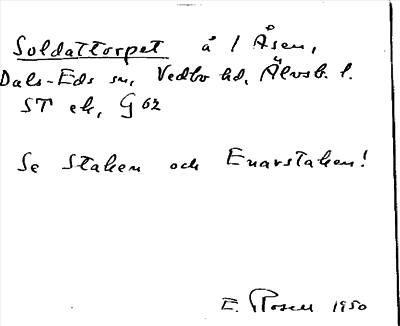 Soldattorpet å 1 Åsen,
Dals-Eds sn, Vedbo hd, Älvsb. l.
ST ek, G 62
Se Staken och Enarstaken!
E. Rosell 1950